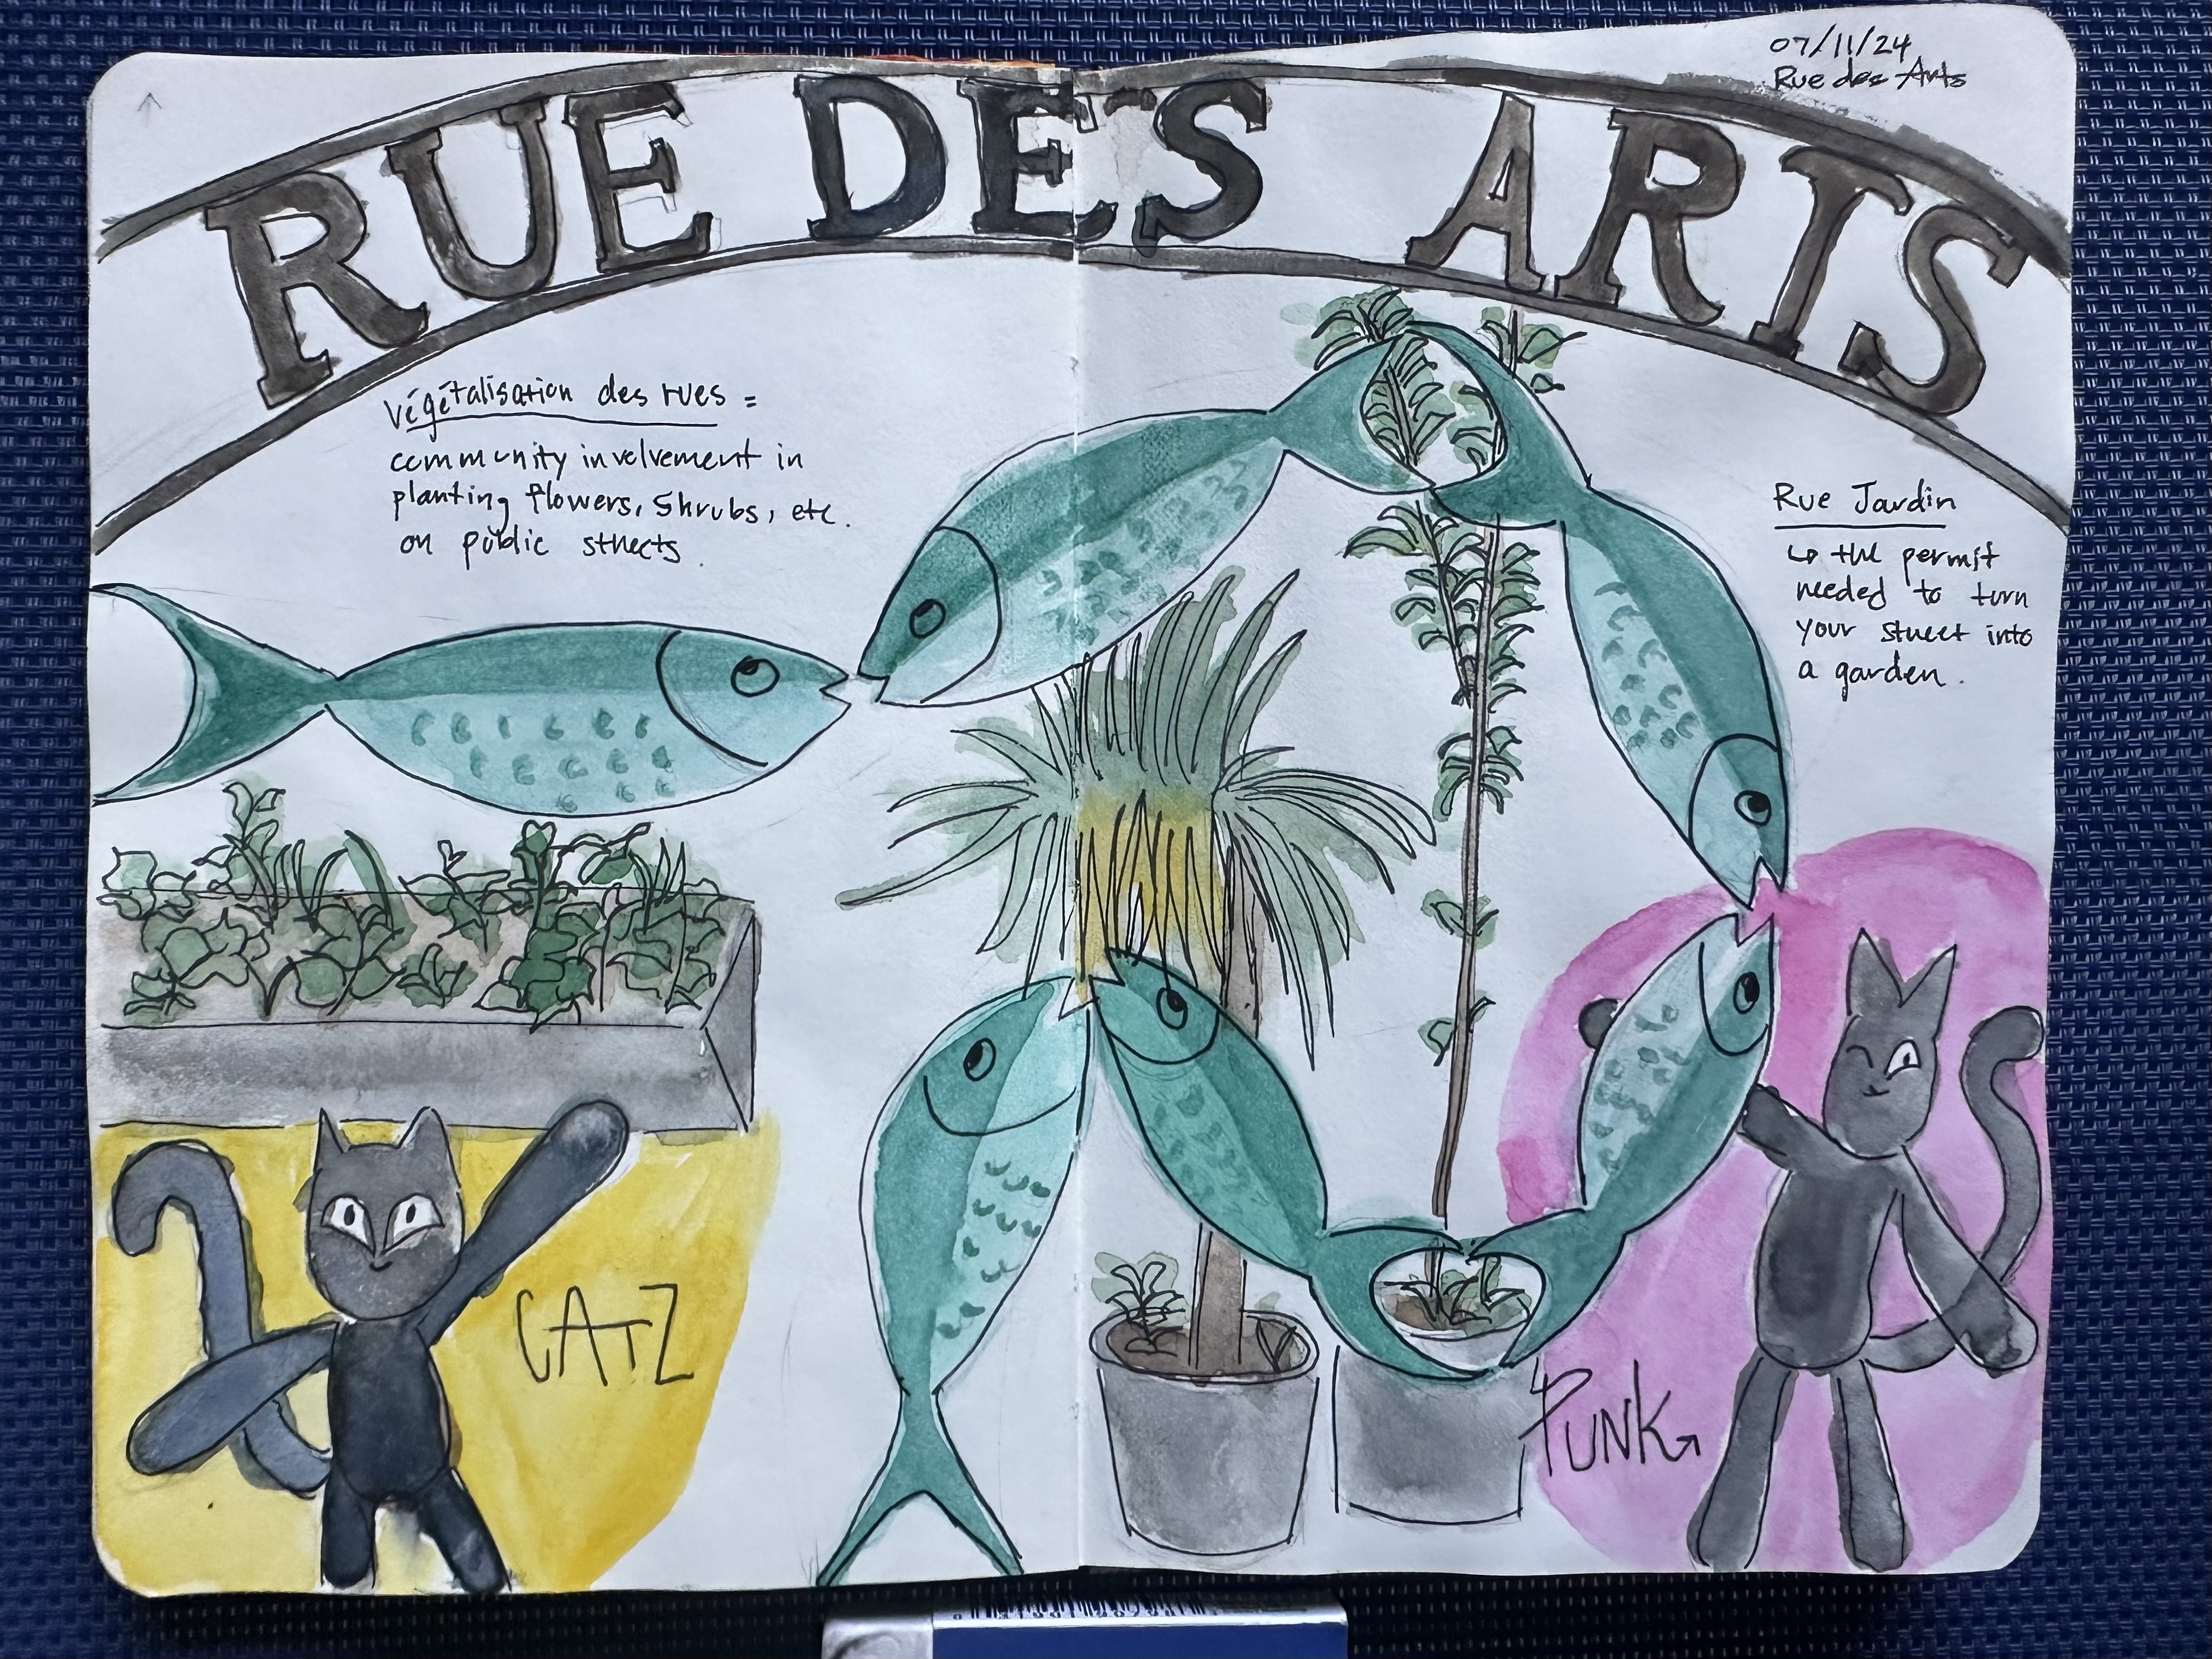 07/11/24
Rue des Arts
RUE DES ARTS
Végétalisation des rues =
community involvement in
planting flowers, shrubs, etc.
on public streets.
Rue Jardin
↳ the permit
needed to turn
your street into
a garden.
CATZ
PUNK